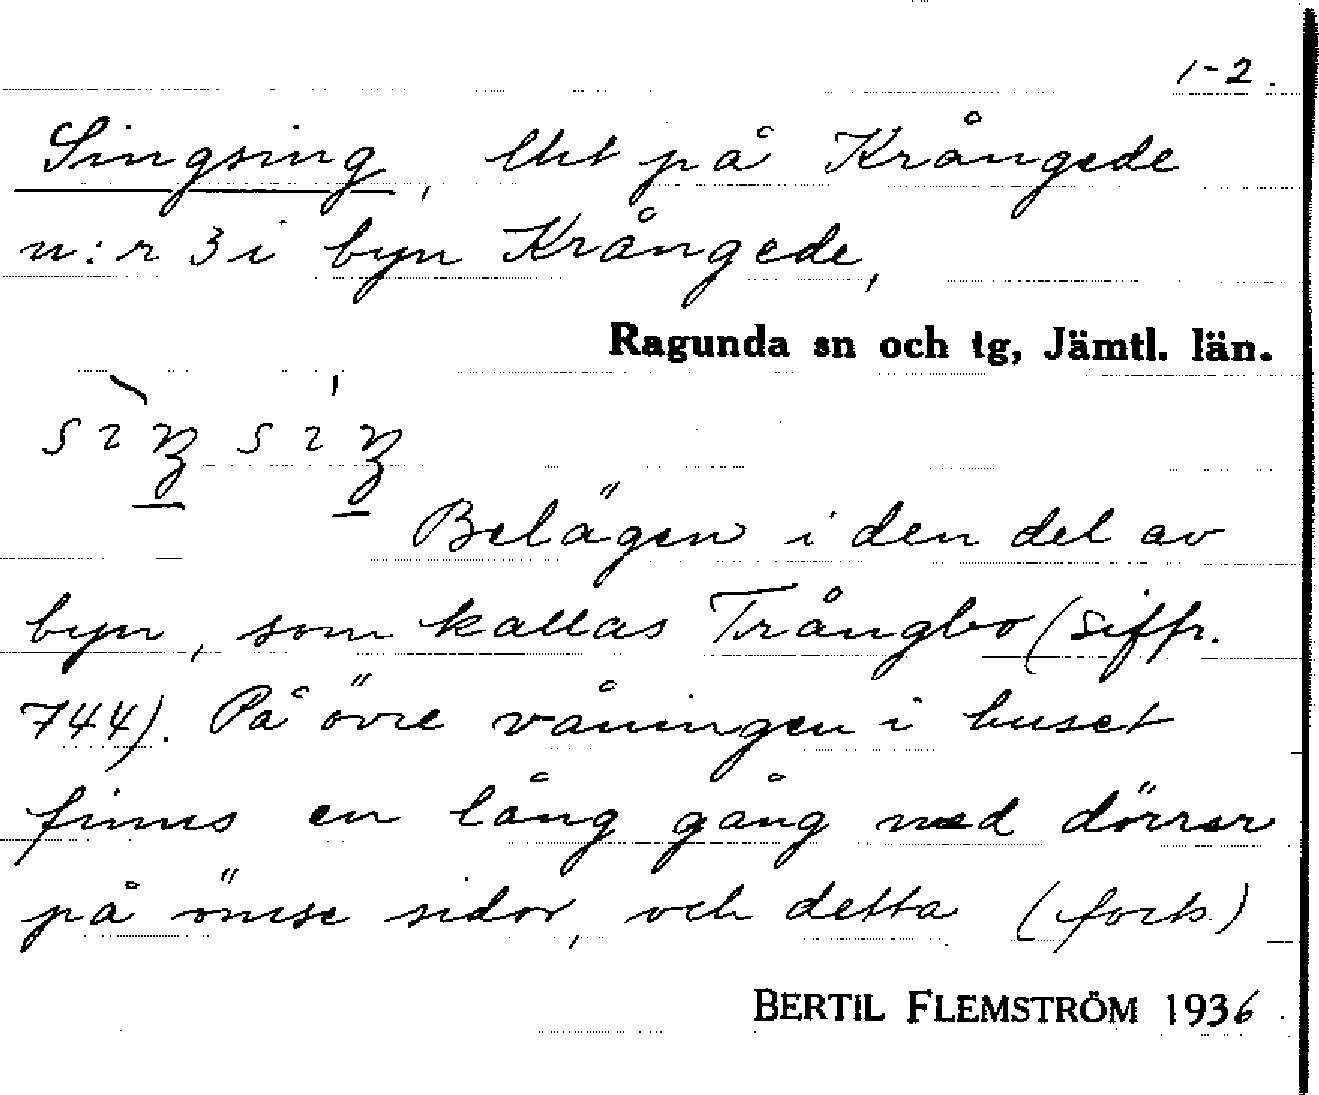 1-2.
Singsing, lht på Krångede
n:r 3 i byn Krångede,
Ragunda sn och tg, Jämtl. län.
Belägen i den del av
byn, som kallas Trångbo (siffr.
744). På övre våningen i huset
finns en lång gång med dörrar
på ömse sidor, och detta (forts.)
BERTIL FLEMSTRÖM 1936